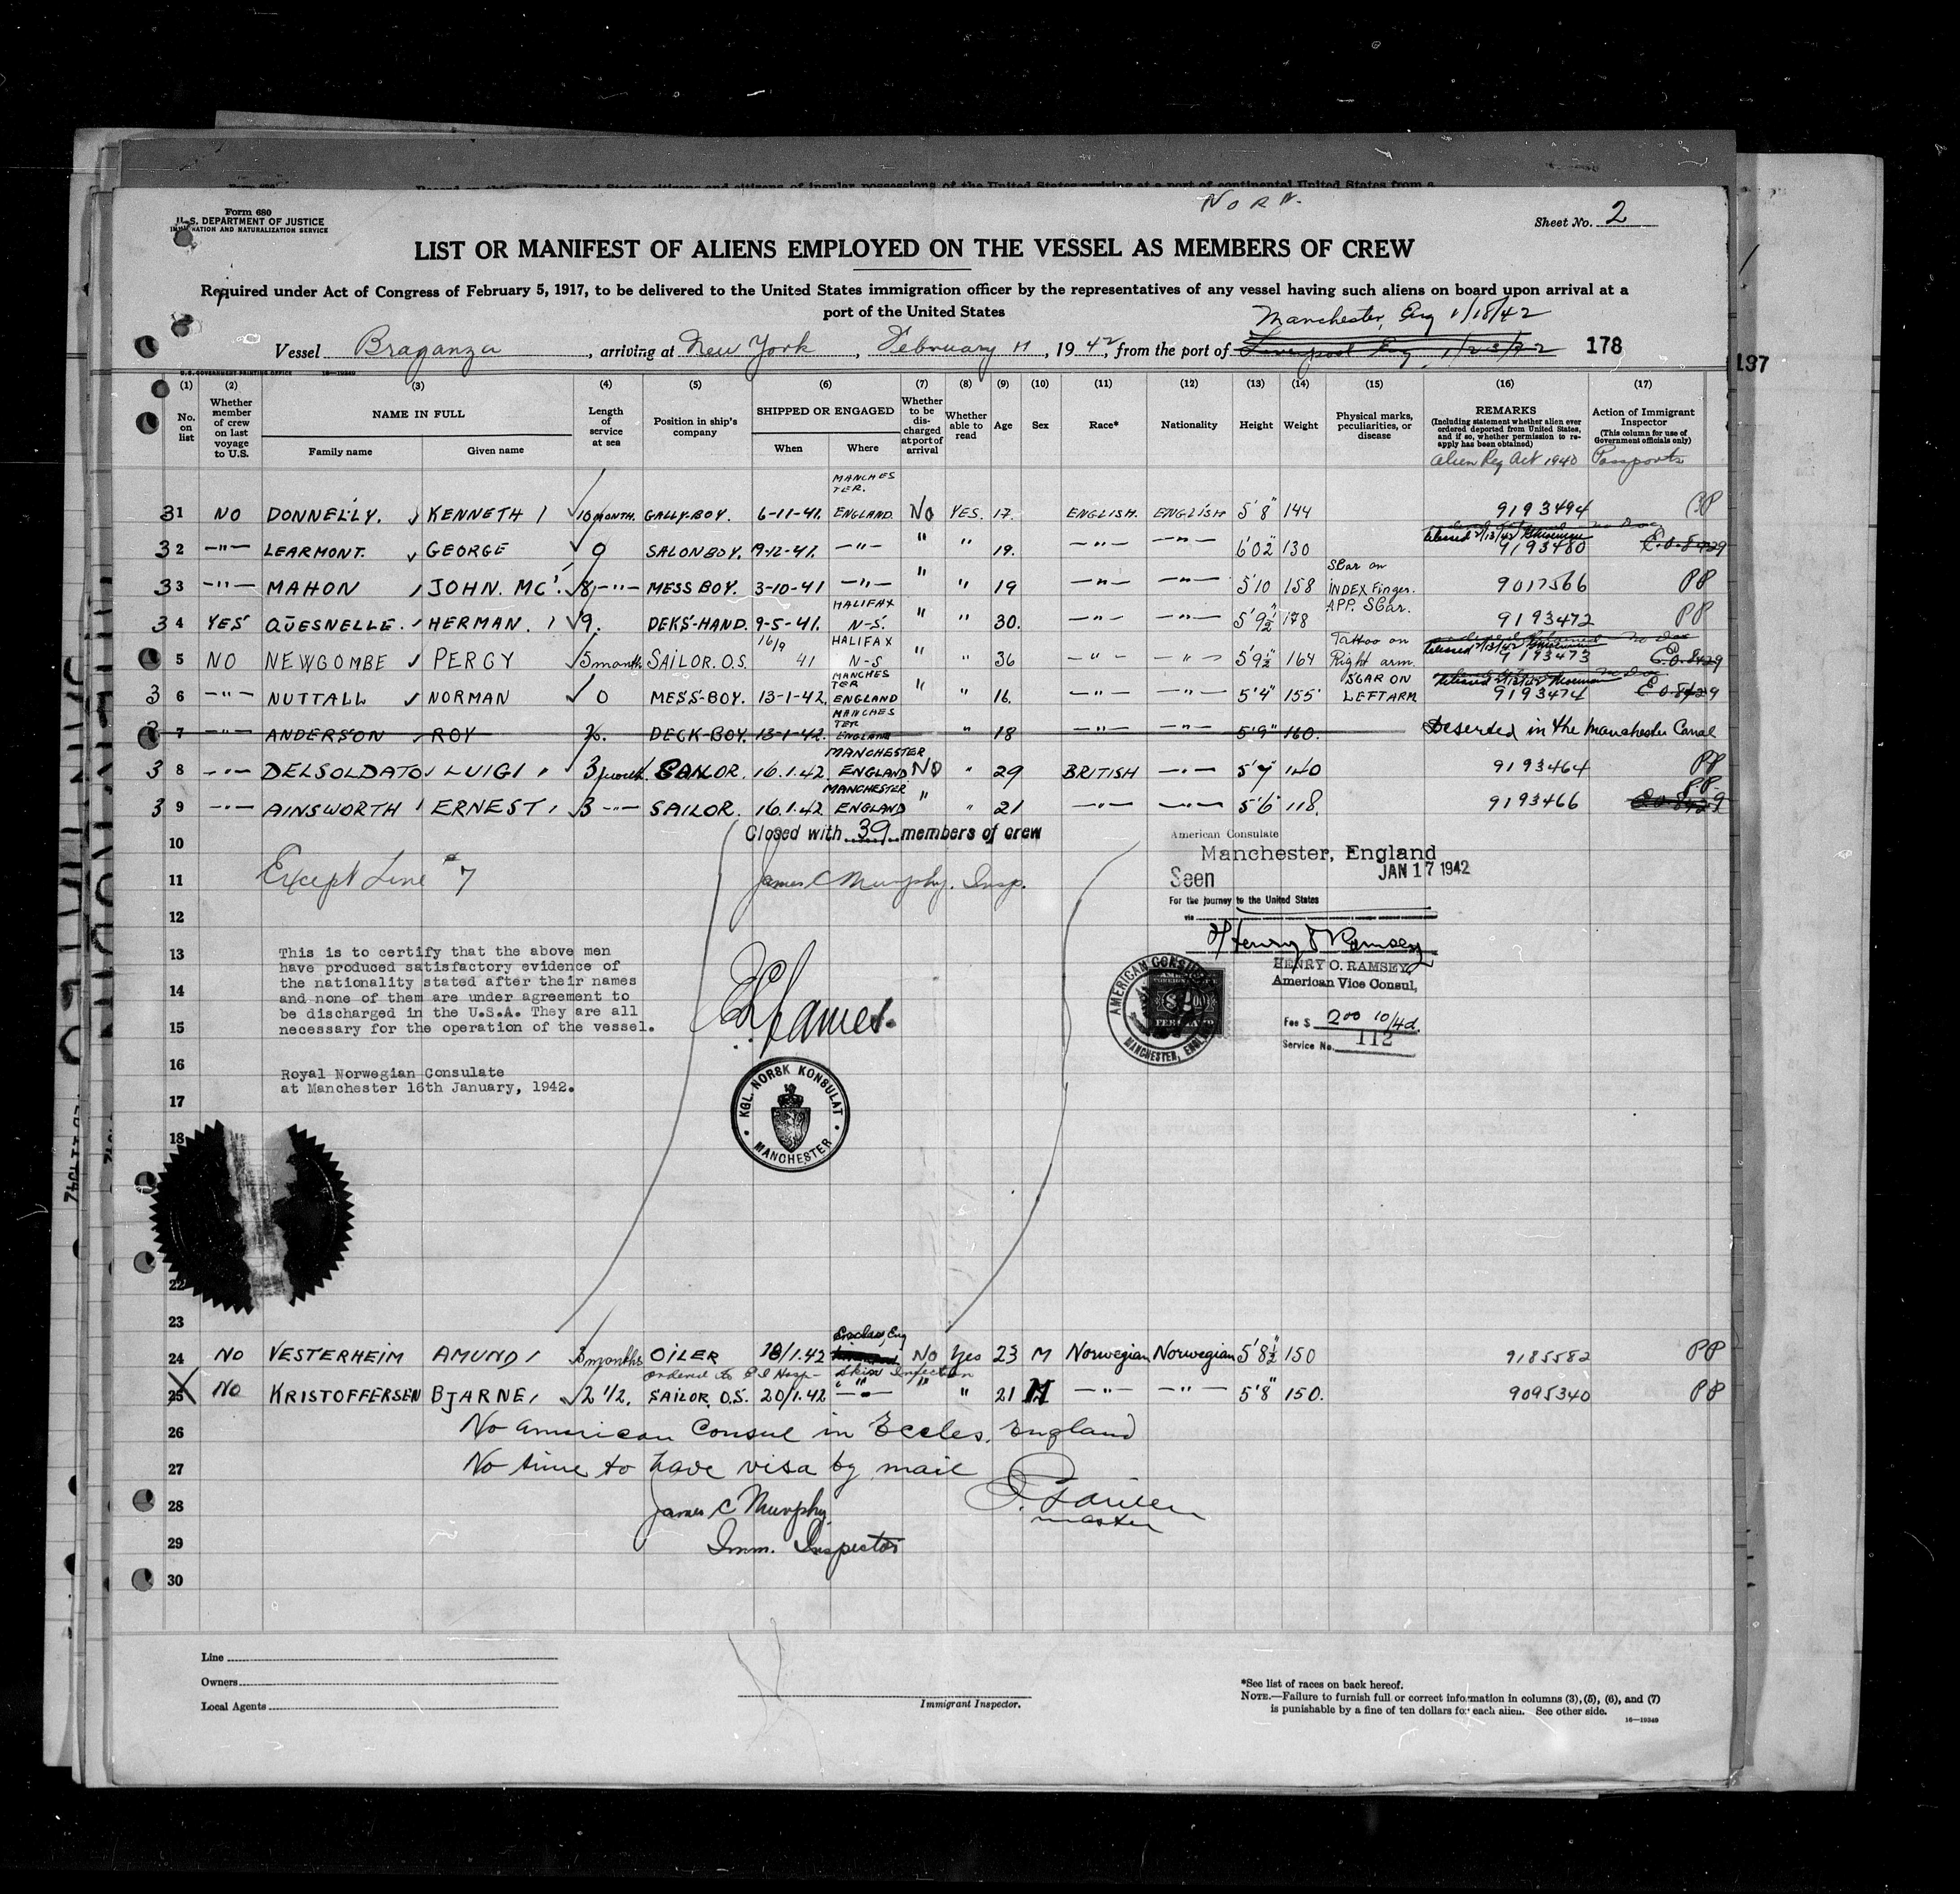 NOR N.
Form 680
U. S. DEPARTMENT OF JUSTICE
IMMIGRATION AND NATURALIZATION SERVICE
Sheet No. 2
LIST OR MANIFEST OF ALIENS EMPLOYED ON THE VESSEL AS MEMBERS OF CREW
Required under Act of Congress of February 5, 1917, to be delivered to the United States immigration officer by the representatives of any vessel having such aliens on board upon arrival at a
port of the United States
Manchester, Eng 1/18/42
Vessel Braganza, arriving at New York, February 11, 1942, from the port of Liverpool Eng 178
197
(1) (2) (3) (4) (5) (6) (7) (8) (9) (10) (11) (12) (13) (14) (15) (16) (17)
No. on list
Whether member of crew on last voyage to U.S.
NAME IN FULL
Family name
Given name
Length of service at sea
Position in ship's company
SHIPPED OR ENGAGED
When
Where
Whether to be discharged at port of arrival
Whether able to read
Age
Sex
Race*
Nationality
Height
Weight
Physical marks, peculiarities, or disease
REMARKS
(Including statement whether alien ever ordered deported from United States, and if so, whether permission to reapply has been obtained)
Alien Reg Act 1940
Action of Immigrant Inspector
(This column for use of Government officials only)
Passports
31 NO DONNELLY. KENNETH 10 MONTH. GALLY-BOY. 6-11-41. MANCHESTER. ENGLAND. No YES. 17. ENGLISH. ENGLISH 5'8" 144 9193494
32 -"- LEARMONT. GEORGE 9 SALONBOY. 9-12-41. -"- " " 19. -"- -"- 6'02" 130 9193480 E.O.8429
33 -"- MAHON JOHN. MC'. 8 -"- MESS BOY. 3-10-41 -"- " " 19 -"- -"- 5'10 158 Scar on INDEX Finger. 9017566 PP
34 YES QUESNELLE. HERMAN. 9. DEKS-HAND. 9-5-41. HALIFAX N-S. " " 30. -"- -"- 5'9½" 178 APP. SCar. 9193472 PP
5 NO NEWCOMBE PERCY 5 month SAILOR. O.S. 16/9 41 HALIFAX N-S " " 36 -"- -"- 5'9½" 164 Tattoo on Right arm. 9193473 E.O.8429
36 -"- NUTTALL NORMAN 0 MESS-BOY. 13-1-42. MANCHESTER ENGLAND " " 16. -"- -"- 5'4" 155 SCAR ON LEFT ARM 9193474 E.O.8429
7 -"- ANDERSON ROY DECK-BOY. 13-1-42. MANCHESTER ENGLAND " 18 -"- 5'9" 160. Deserted in the Manchester Canal
38 -"- DELSOLDATO LUIGI SAILOR. 16.1.42. MANCHESTER ENGLAND NO " 29 BRITISH -"- 5'7" 140 9193464 PP
39 -"- AINSWORTH ERNEST 3 -"- SAILOR. 16.1.42 MANCHESTER ENGLAND " " 21 -"- -"- 5'6" 118. 9193466 P.P. E.O.8429
10
Closed with 39 members of crew
11 Except Line #7
James C Murphy. Insp.
American Consulate
Manchester, England
Seen JAN 17 1942
For the journey to the United States
via
12
Henry O Ramsey
HENRY O. RAMSEY
American Vice Consul,
Fee $ 2.00 10/4d.
Service No. 112
AMERICAN CONSULATE MANCHESTER, ENGLAND
13 This is to certify that the above men
have produced satisfactory evidence of
the nationality stated after their names
14 and none of them are under agreement to
be discharged in the U.S.A. They are all
15 necessary for the operation of the vessel.
16 Royal Norwegian Consulate
at Manchester 16th January, 1942.
KGL. NORSK KONSULAT
MANCHESTER
17
18
22
23
24 NO VESTERHEIM AMUND months OILER 18/1.42 Eccles, Eng No Yes 23 M Norwegian Norwegian 5'8½" 150 9185582 PP
Ordered to E I Hosp- Skin Infection
25 NO KRISTOFFERSEN BJARNE 2 1/2. SAILOR. O.S. 20/1.42 -"- " " 21 M -"- -"- 5'8" 150. 9095340 PP
26 No American Consul in Eccles, England
27 No time to have visa by mail
28 James C Murphy
master
29 Imm. Inspector
30
Line
Owners
Local Agents
Immigrant Inspector.
*See list of races on back hereof.
NOTE.—Failure to furnish full or correct information in columns (3), (5), (6), and (7)
is punishable by a fine of ten dollars for each alien. See other side.
16—19349